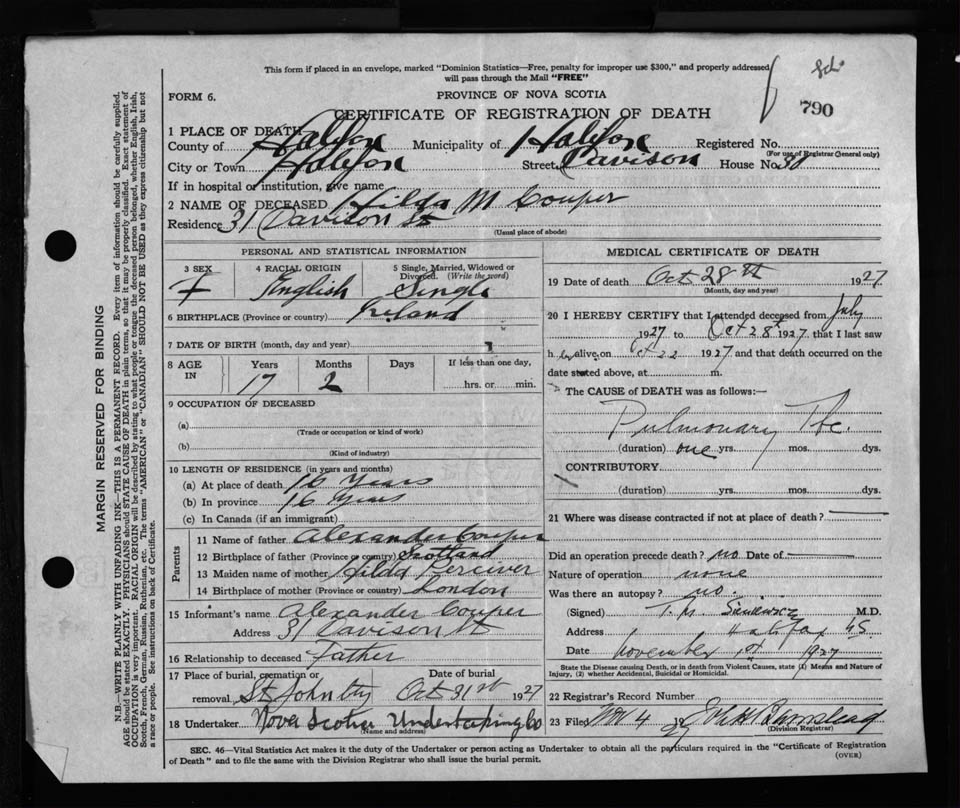 This form if placed in an envelope, marked "Dominion Statistics—Free, penalty for improper use $300," and properly addressed
will pass through the Mail "FREE"
790
FORM 6.
PROVINCE OF NOVA SCOTIA
CERTIFICATE OF REGISTRATION OF DEATH
1 PLACE OF DEATH
County of Halifax Municipality of Halifax Registered No.
(For use of Registrar General only)
City or Town Halifax Street Davison House No.
If in hospital or institution, give name
2 NAME OF DECEASED Hilda M Couper
Residence 31 Davison St
(Usual place of abode)
MARGIN RESERVED FOR BINDING
N.B.—WRITE PLAINLY WITH UNFADING INK—THIS IS A PERMANENT RECORD. Every item of information should be carefully supplied.
AGE should be stated EXACTLY. PHYSICIANS should STATE CAUSE OF DEATH in plain terms, so that it may be properly classified. Exact statement of
OCCUPATION is very important. RACIAL ORIGIN will be described by stating to what people or tongue the deceased person belonged, whether English, Irish,
Scotch, French, German, Russian, Ruthenian, etc. The terms "AMERICAN" or "CANADIAN" SHOULD NOT BE USED as they express citizenship but not
a race or people. See instructions on back of Certificate.
PERSONAL AND STATISTICAL INFORMATION
3 SEX
F
4 RACIAL ORIGIN
English
5 Single, Married, Widowed or
Divorced. (Write the word)
Single
6 BIRTHPLACE (Province or country) Ireland
7 DATE OF BIRTH (month, day and year)
8 AGE
IN
Years
17
Months
2
Days
If less than one day,
hrs. or min.
9 OCCUPATION OF DECEASED
(a)
(Trade or occupation or kind of work)
(b)
(Kind of industry)
10 LENGTH OF RESIDENCE (in years and months)
(a) At place of death 16 Years
(b) In province 16 Years
(c) In Canada (if an immigrant)
Parents
11 Name of father Alexander Couper
12 Birthplace of father (Province or country) Scotland
13 Maiden name of mother Hilda Perciver
14 Birthplace of mother (Province or country) London
15 Informant's name Alexander Couper
Address 31 Davison St
16 Relationship to deceased father
17 Place of burial, cremation or
removal St John Date of burial Oct 31st 1927
18 Undertaker Nova Scotia Undertaking Co
(Name and address)
MEDICAL CERTIFICATE OF DEATH
19 Date of death Oct 28th 1927
(Month, day and year)
20 I HEREBY CERTIFY that I attended deceased from July
1927 to Oct 28th 1927, that I last saw
her alive on Oct 22 1927 and that death occurred on
date stated above, at m.
The CAUSE of DEATH was as follows:—
Pulmonary Tbc.
(duration) one yrs. mos. dys.
CONTRIBUTORY
(duration) yrs. mos. dys.
21 Where was disease contracted if not at place of death?
Did an operation precede death? no Date of
Nature of operation none
Was there an autopsy? no.
(Signed) M.D.
Address Halifax NS
Date November 1st 1927
State the Disease causing Death, or in death from Violent Causes, state (1) Means and Nature of
Injury, (2) whether Accidental, Suicidal or Homicidal.
22 Registrar's Record Number
23 Filed Nov 4 27
(Division Registrar)
SEC. 46—Vital Statistics Act makes it the duty of the Undertaker or person acting as Undertaker to obtain all the particulars required in the "Certificate of Registration
of Death" and to file the same with the Division Registrar who shall issue the burial permit.
(OVER)